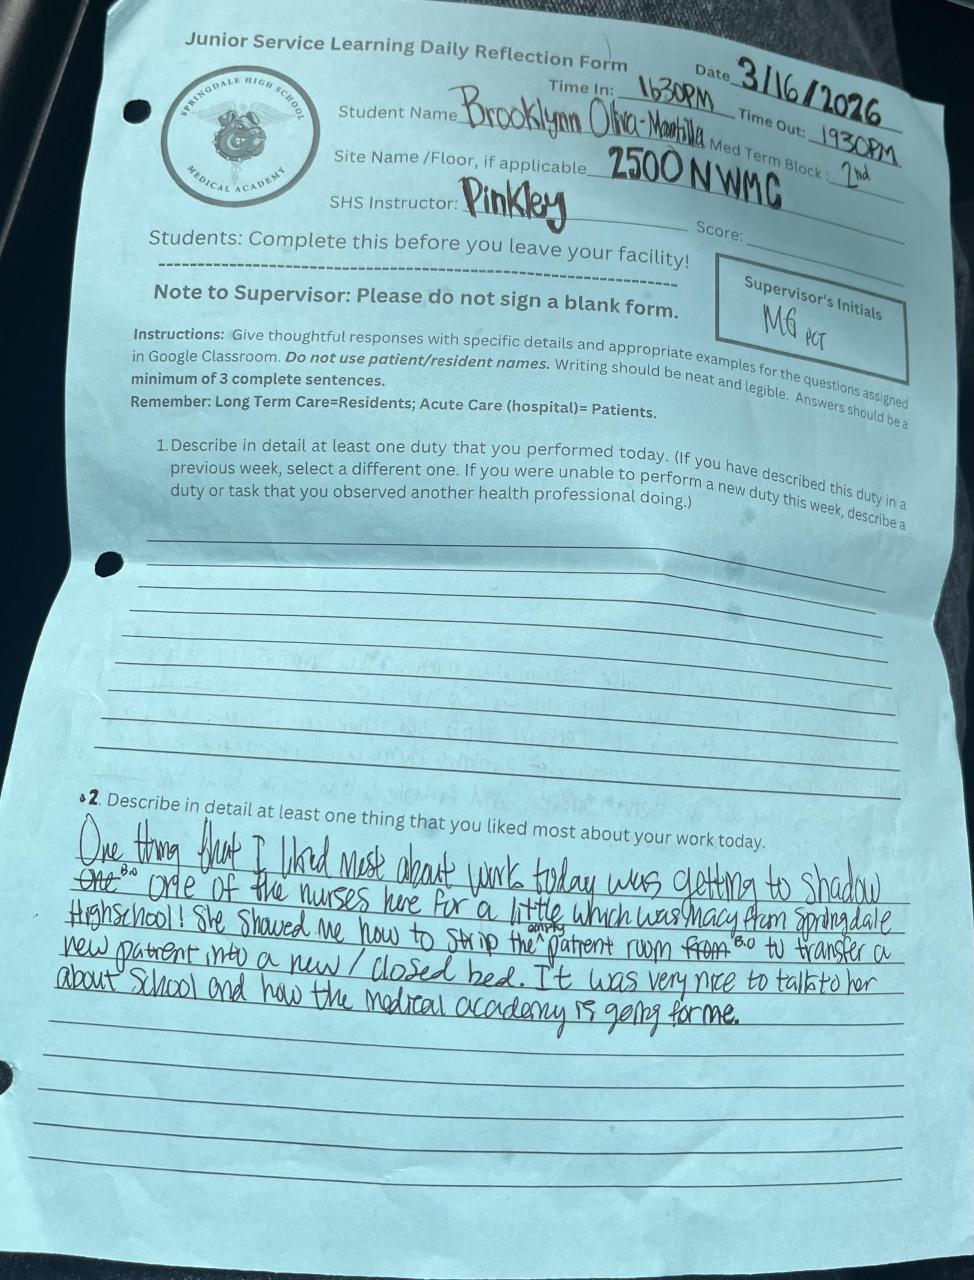 Junior Service Learning Daily Reflection Form
Date 3/16/2026
Time In: 1630PM
Time Out: 1930PM
SPRINGDALE HIGH SCHOOL
MEDICAL ACADEMY
Student Name Brooklynn Oliva-Mantilla Med Term Block: 2nd
Site Name /Floor, if applicable 2500 NWMC
SHS Instructor: Pinkley
Score:
Students: Complete this before you leave your facility!
Note to Supervisor: Please do not sign a blank form.
Supervisor's Initials
MG PCT
Instructions: Give thoughtful responses with specific details and appropriate examples for the questions assigned
in Google Classroom. Do not use patient/resident names. Writing should be neat and legible. Answers should be a
minimum of 3 complete sentences.
Remember: Long Term Care=Residents; Acute Care (hospital)= Patients.
1. Describe in detail at least one duty that you performed today. (If you have described this duty in a
previous week, select a different one. If you were unable to perform a new duty this week, describe a
duty or task that you observed another health professional doing.)
2. Describe in detail at least one thing that you liked most about your work today.
One thing that I liked most about work today was getting to shadow
one B.O one of the nurses here for a little which was macy from Springdale
Highschool! She showed me how to strip the empty patient room from B.O to transfer a
new patient into a new / closed bed. It was very nice to talk to her
about School and how the medical academy is going for me.